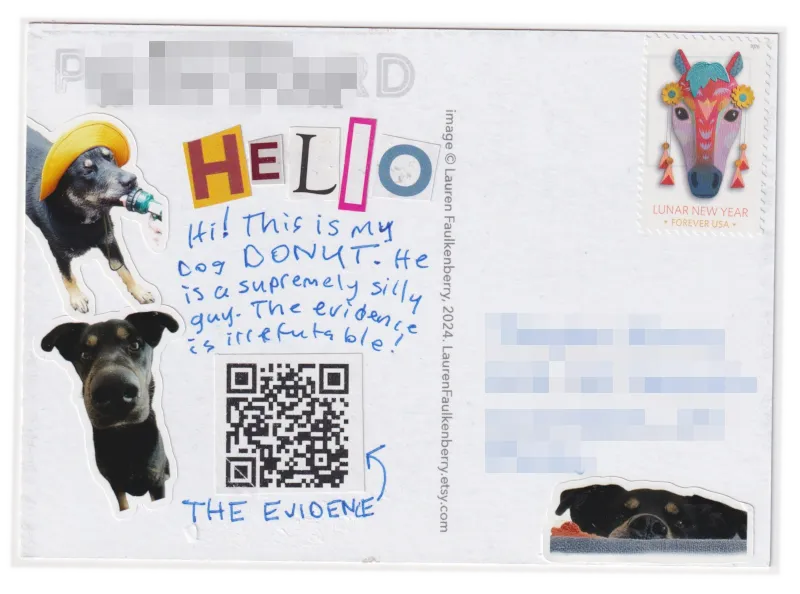 HELLO
Hi! This is my
Dog DONUT. He
is a supremely silly
guy. The evidence
is irrefutable!
THE EVIDENCE
image © Lauren Faulkenberry, 2024. LaurenFaulkenberry.etsy.com
LUNAR NEW YEAR
• FOREVER USA •